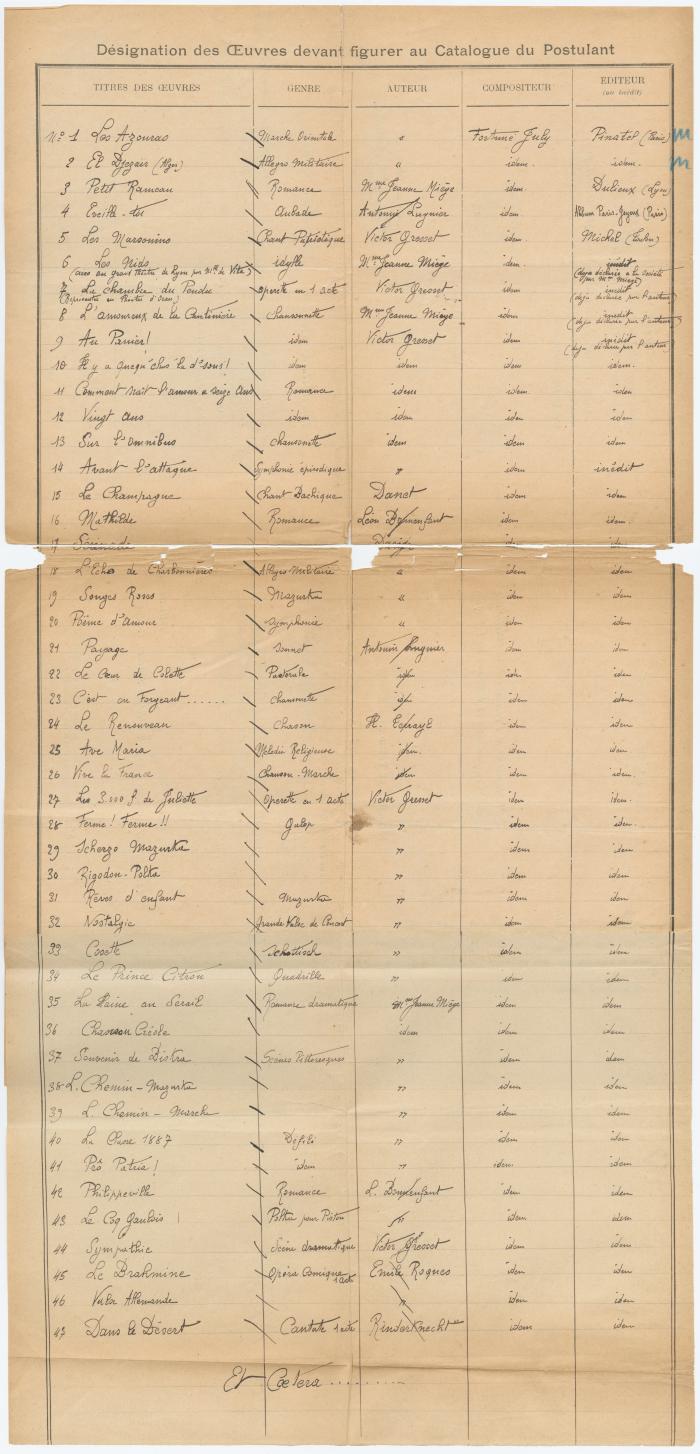 Désignation des Œuvres devant figurer au Catalogue du Postulant
TITRES DES ŒUVRES GENRE AUTEUR COMPOSITEUR EDITEUR
(ou inédit)
Nº 1 Les Azouras Marche Orientale " Fortuné July Pinatel (Paris)
2 El Djezair (Alger) Allegro Militaire " idem. idem.
3 Petit Rameau Romance Mme Jeanne Miège idem. Dulieux (Lyon)
4 Eveille-toi Aubade Antonin Lugnier idem. Album Paris- (Paris)
5 Les Marsouins Chant Patriotique Victor Gresset idem. Michel (Toulon)
6 Les Nids idylle Mme Jeanne Miège idem. inédit
(avec au grand théâtre de Lyon par Mlle de Vita) (déja déclarée a la société par Mme Miège)
7 La Chambre du Poudre opérette en 1 acte Victor Gresset idem inédit
(Représentée au Théâtre d'Oran) (déja déclarée par l'auteur)
8 L'amoureux de la Cantinière chansonnette Mme Jeanne Miège idem inédit
(déja déclarée par l'auteur)
9 Au Panier! idem Victor Gresset idem inédit
(deja déclarée par l'auteur)
10 Il y a quéqu'chos' là d'sous! idem idem idem idem.
11 Comment naît l'amour a seize ans Romance idem idem idem
12 Vingt ans idem idem idem idem
13 Sur l'omnibus chansonnette idem idem idem
14 Avant l'attaque Symphonie épisodique " idem inédit
15 Le Champagne Chant Bachique Danet idem idem
16 Mathilde Romance Léon Bonenfant idem idem.
17 Sérénade
18 L'Echo de Charbonnières Allegro Militaire " idem idem
19 Songes Roses Mazurka " idem idem
20 Poême d'amour Symphonie " idem idem
21 Paysage Sonnet Antonin Lugnier idem idem
22 Le Cœur de Colette Pastorale idem idem idem
23 C'est en Forgeant...... chansonnette idem idem idem
24 Le Renouveau Chanson H. idem idem
25 Ave Maria Mélodie Religieuse idem. idem idem
26 Vive la France Chanson-Marche idem idem idem.
27 Les 3.000 f de Juliette Opérette en 1 acte Victor Gresset idem idem.
28 Ferme! Ferme!! Galop " idem idem.
29 Scherzo Mazurka " idem idem
30 Rigodon-Polka " idem idem
31 Rêves d'enfant Mazurka " idem idem
32 Nostalgie Grande Valse de Concert " idem idem
33 Cosette Schottisch " idem idem
34 Le Prince Citron Quadrille " idem idem
35 La Haine au Sérail Romance dramatique Mme Jeanne Miège idem idem
36 Chanson Créole idem idem idem
37 Souvenir de Biskra Scènes Pittoresques " idem idem
38 L. Chemin-Mazurka " idem idem
39 L. Chemin-Marche " idem idem
40 La Classe 1887 Défilé " idem idem
41 Pro Patria! idem " idem idem
42 Philippeville Romance L. Bonenfant idem idem
43 Le Coq Gaulois Polka pour Piston " idem idem
44 Sympathie Scène dramatique Victor Gresset idem idem
45 Le Brahmine Opéra Comique 1 acte Emile Roques idem idem
46 Valse Allemande " idem idem
47 Dans le Désert Cantate 1 acte Rinderknecht idem idem
Et Cœtera .........